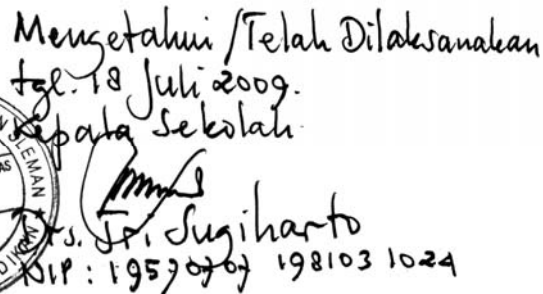 Mengetahui / Telah Dilaksanakan
tgl. 18 Juli 2009.
Kepala Sekolah
SLEMAN
Drs. Tri Sugiharto
NIP : 19570707 198103 1024